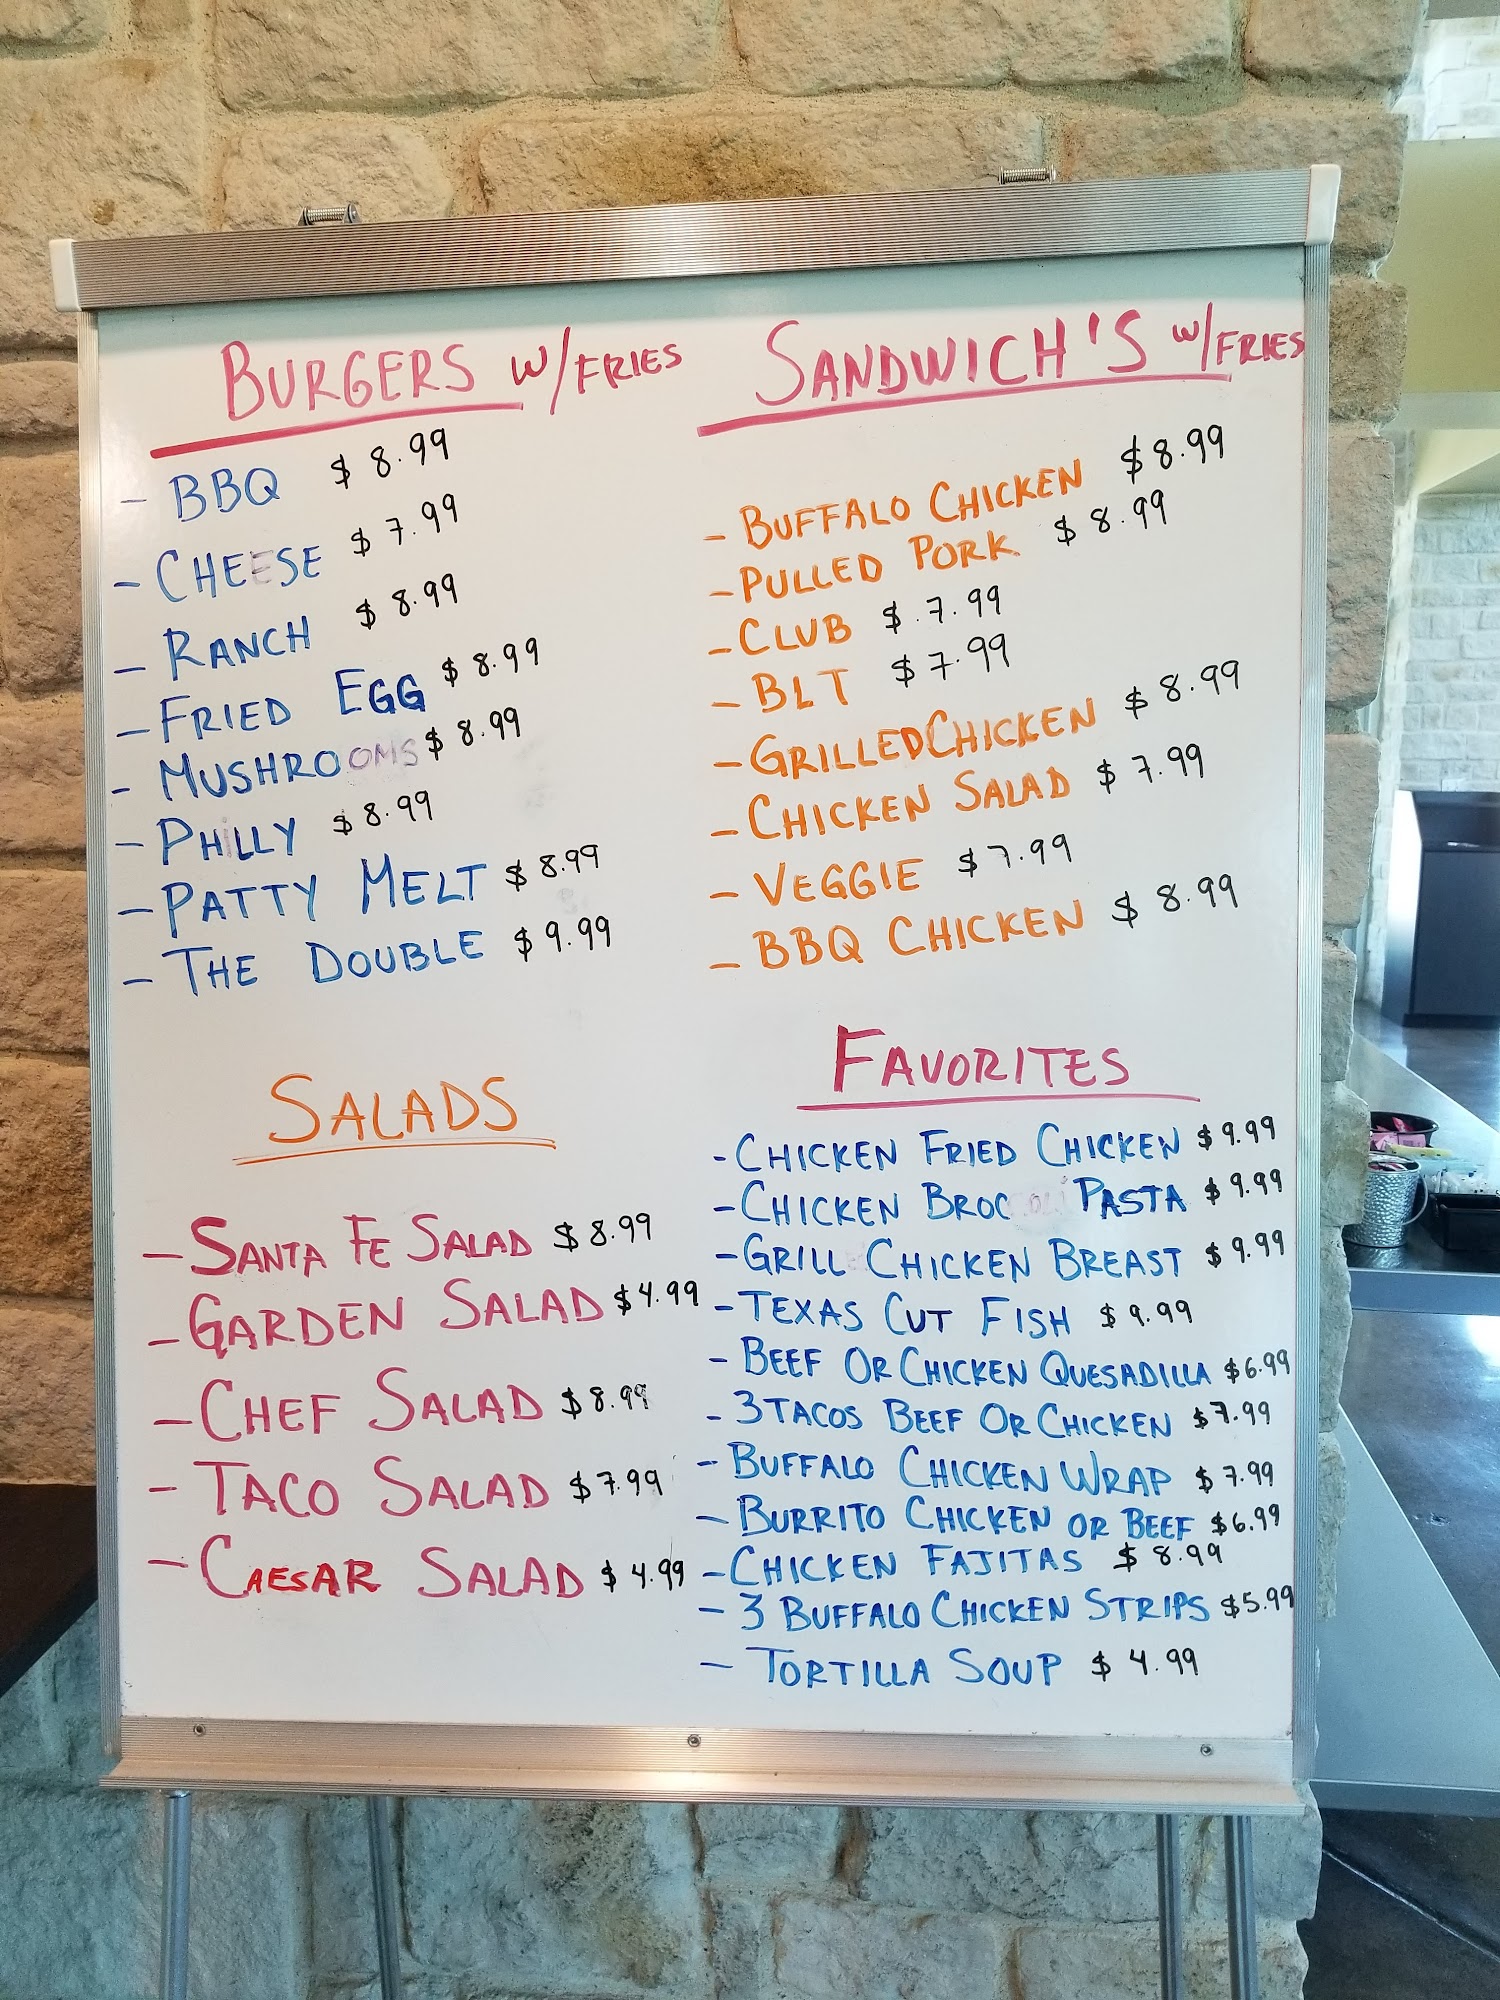 BURGERS W/FRIES
- BBQ $ 8.99
- CHEESE $ 7.99
- RANCH $ 8.99
- FRIED EGG $ 8.99
- MUSHROOMS $ 8.99
- PHILLY $ 8.99
- PATTY MELT $ 8.99
- THE DOUBLE $ 9.99
SANDWICH'S W/FRIES
- BUFFALO CHICKEN $ 8.99
- PULLED PORK $ 8.99
- CLUB $ 7.99
- BLT $ 7.99
- GRILLED CHICKEN $ 8.99
- CHICKEN SALAD $ 7.99
- VEGGIE $ 7.99
- BBQ CHICKEN $ 8.99
SALADS
- SANTA FE SALAD $ 8.99
- GARDEN SALAD $ 4.99
- CHEF SALAD $ 8.99
- TACO SALAD $ 7.99
- CAESAR SALAD $ 4.99
FAVORITES
- CHICKEN FRIED CHICKEN $ 9.99
- CHICKEN BROCCOLI PASTA $ 9.99
- GRILL CHICKEN BREAST $ 9.99
- TEXAS CUT FISH $ 9.99
- BEEF OR CHICKEN QUESADILLA $ 6.99
- 3 TACOS BEEF OR CHICKEN $ 7.99
- BUFFALO CHICKEN WRAP $ 7.99
- BURRITO CHICKEN OR BEEF $ 6.99
- CHICKEN FAJITAS $ 8.99
- 3 BUFFALO CHICKEN STRIPS $ 5.99
- TORTILLA SOUP $ 4.99